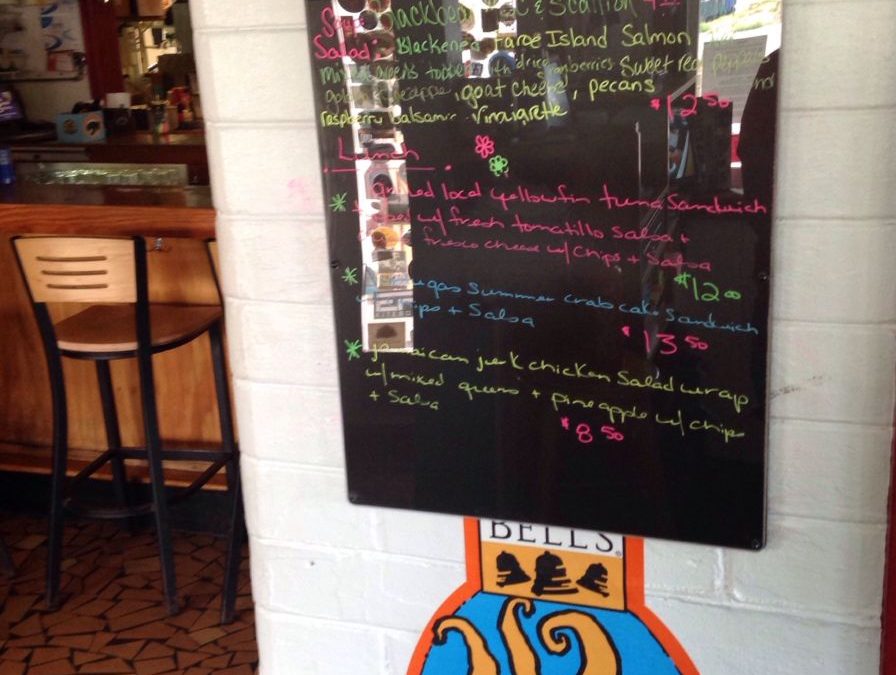 Soup: Blackbean & Scallion
Salad: Blackened Faroe Island Salmon
mixed greens topped with dried cranberries sweet red peppers
pineapple, goat cheese, pecans
raspberry balsamic vinaigrette $12.50
Lunch
* grilled local yellowfin tuna Sandwich
w/ fresh tomatillo Salsa +
fresco cheese w/ chips + Salsa
$12.00
* Summer crabcake Sandwich
w/ chips + Salsa
$13.50
* Jamaican jerk chicken Salad wrap
w/ mixed greens + pineapple w/ chips
+ Salsa
$8.50
BELL'S